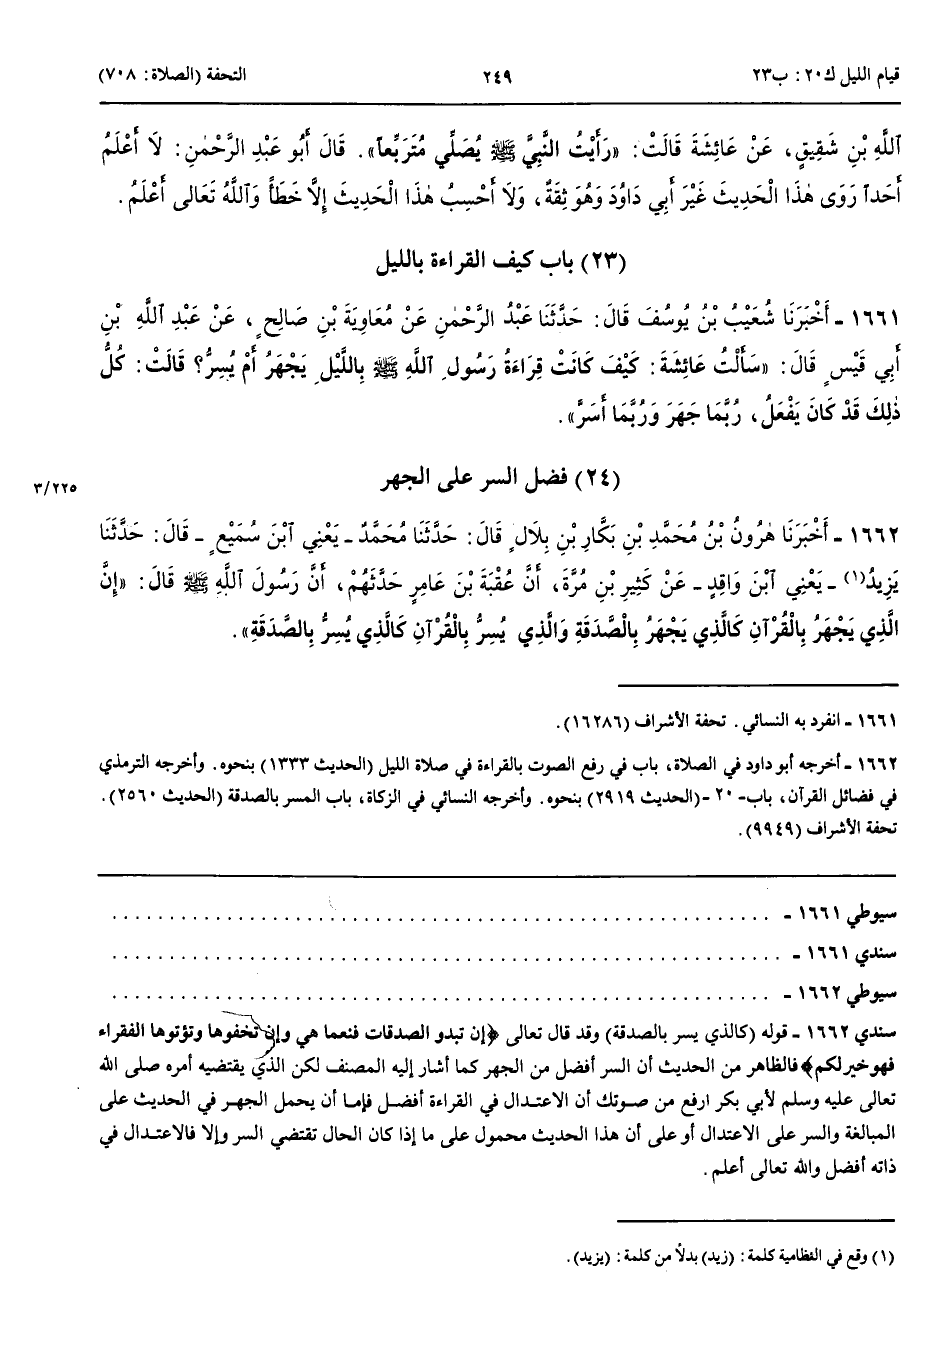 قيام الليل ك٢٠: ب٢٣ ٢٤٩ التحفة (الصلاة: ٧٠٨)
ٱللَّهِ بْنِ شَقِيقٍ، عَنْ عَائِشَةَ قَالَتْ: «رَأَيْتُ النَّبِيَّ ﷺ يُصَلِّي مُتَرَبِّعاً». قَالَ أَبُو عَبْدِ الرَّحْمٰنِ: لَا أَعْلَمُ
أَحَداً رَوَى هٰذَا الْحَدِيثَ غَيْرَ أَبِي دَاوُدَ وَهُوَ ثِقَةٌ، وَلَا أَحْسِبُ هٰذَا الْحَدِيثَ إِلَّا خَطَأً وَٱللَّهُ تَعَالى أَعْلَمُ.
(٢٣) باب كيف القراءة بالليل
١٦٦١ ـ أَخْبَرَنَا شُعَيْبُ بْنُ يُوسُفَ قَالَ: حَدَّثَنَا عَبْدُ الرَّحْمٰنِ عَنْ مُعَاوِيَةَ بْنِ صَالِحٍ، عَنْ عَبْدِ ٱللَّهِ بْنِ
أَبِي قَيْسٍ قَالَ: «سَأَلْتُ عَائِشَةَ: كَيْفَ كَانَتْ قِرَاءَةُ رَسُولِ ٱللَّهِ ﷺ بِاللَّيْلِ يَجْهَرُ أَمْ يُسِرُّ؟ قَالَتْ: كُلُّ
ذٰلِكَ قَدْ كَانَ يَفْعَلُ، رُبَّمَا جَهَرَ وَرُبَّمَا أَسَرَّ».
(٢٤) فضل السر على الجهر
٣/٢٢٥
١٦٦٢ ـ أَخْبَرَنَا هٰرُونُ بْنُ مُحَمَّدِ بْنِ بَكَّارِ بْنِ بِلَالٍ قَالَ: حَدَّثَنَا مُحَمَّدٌ ـ يَعْنِي ٱبْنَ سُمَيْعٍ ـ قَالَ: حَدَّثَنَا
يَزِيدُ(١) ـ يَعْنِي ٱبْنَ وَاقِدٍ ـ عَنْ كَثِيرِ بْنِ مُرَّةَ، أَنَّ عُقْبَةَ بْنَ عَامِرٍ حَدَّثَهُمْ، أَنَّ رَسُولَ ٱللَّهِ ﷺ قَالَ: «إِنَّ
الَّذِي يَجْهَرُ بِالْقُرْآنِ كَالَّذِي يَجْهَرُ بِالصَّدَقَةِ وَالَّذِي يُسِرُّ بِالْقُرْآنِ كَالَّذِي يُسِرُّ بِالصَّدَقَةِ».
١٦٦١ ـ انفرد به النسائي. تحفة الأشراف (١٦٢٨٦).
١٦٦٢ ـ أخرجه أبو داود في الصلاة، باب في رفع الصوت بالقراءة في صلاة الليل (الحديث ١٣٣٣) بنحوه. وأخرجه الترمذي
في فضائل القرآن، باب- ٢٠ -(الحديث ٢٩١٩) بنحوه. وأخرجه النسائي في الزكاة، باب المسر بالصدقة (الحديث ٢٥٦٠).
تحفة الأشراف (٩٩٤٩).
سيوطي ١٦٦١ ـ . . . . . . . . . . . . . . . . . . . . . . . . . . . . . .
سندي ١٦٦١ ـ . . . . . . . . . . . . . . . . . . . . . . . . . . . . . .
سيوطي ١٦٦٢ ـ . . . . . . . . . . . . . . . . . . . . . . . . . . . . . .
سندي ١٦٦٢ ـ قوله (كالذي يسر بالصدقة) وقد قال تعالى ﴿إن تبدو الصدقات فنعما هي وإن تخفوها وتؤتوها الفقراء
فهو خير لكم﴾ فالظاهر من الحديث أن السر أفضل من الجهر كما أشار إليه المصنف لكن الذي يقتضيه أمره صلى الله
تعالى عليه وسلم لأبي بكر ارفع من صوتك أن الاعتدال في القراءة أفضل فإما أن يحمل الجهر في الحديث على
المبالغة والسر على الاعتدال أو على أن هذا الحديث محمول على ما إذا كان الحال تقتضي السر وإلا فالاعتدال في
ذاته أفضل والله تعالى أعلم.
(١) وقع في النظامية كلمة: (زيد) بدلاً من كلمة: (يزيد).